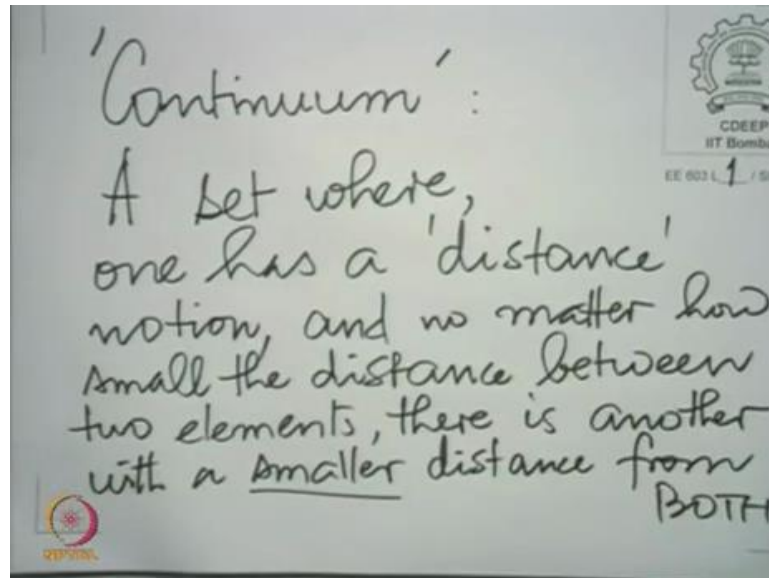 'Continuum' :
A set where,
one has a 'distance'
notion, and no matter how
small the distance between
two elements, there is another
with a smaller distance from
BOTH
CDEEP
IIT Bomba
EE 603 L 1 / S